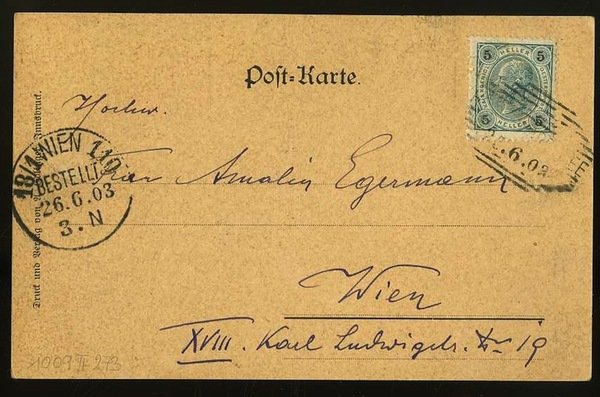 Post-Karte.
5 HELLER 5
5 HELLER 5
26.6.03
Hochw.
18/1 WIEN 110
BESTELLT
26.6.03
3. N
Frau Amalia Egermann
Wien
XVIII. Karl Ludwigstr. 19
Druck und Verlag von Innsbruck.
1009 II 273